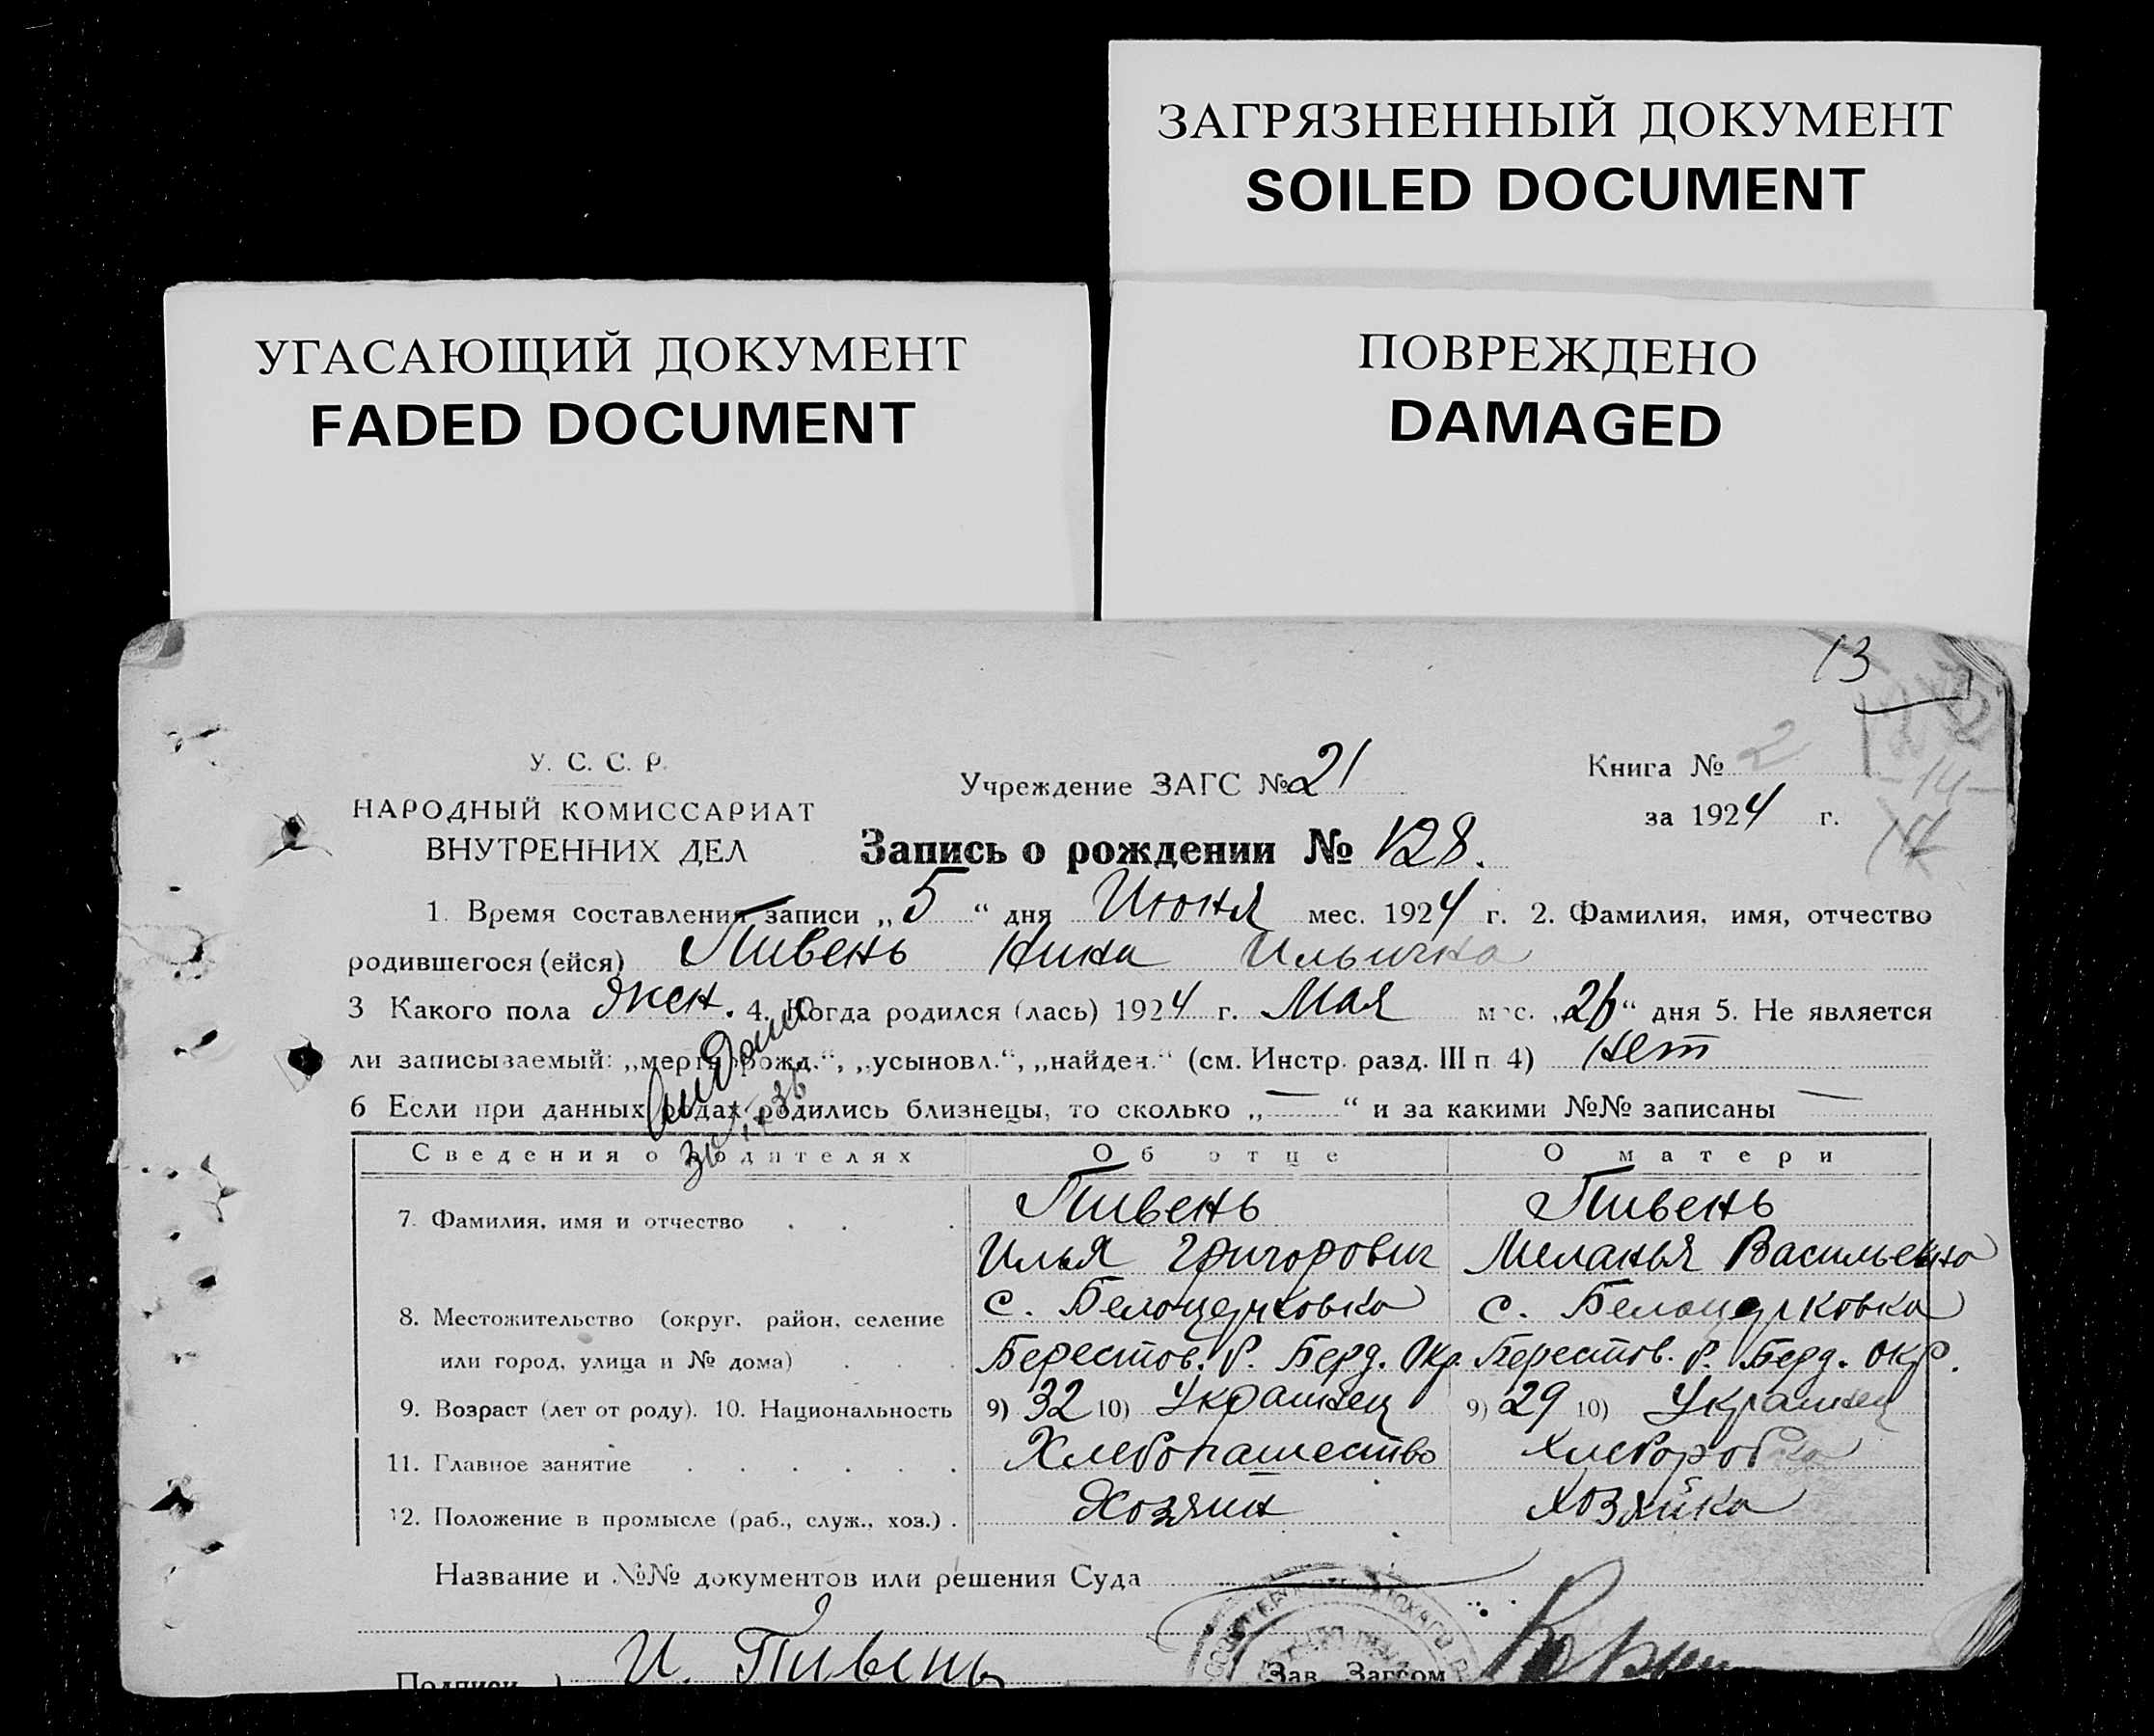 ЗАГРЯЗНЕННЫЙ ДОКУМЕНТ
SOILED DOCUMENT
УГАСАЮЩИЙ ДОКУМЕНТ
FADED DOCUMENT
ПОВРЕЖДЕНО
DAMAGED
13
У. С. С. Р.
НАРОДНЫЙ КОМИССАРИАТ
ВНУТРЕННИХ ДЕЛ
Учреждение ЗАГС № 21
Книга № 2
за 1924 г.
Запись о рождении № 128.
1. Время составления записи „5“ дня Июня мес. 1924 г. 2. Фамилия, имя, отчество
родившегося (ейся) Пивень Нина Ильична
3 Какого пола жен. 4. Когда родился (лась) 1924 г. Мая мес. „26“ дня 5. Не является
ли записываемый: „мертворожд.“, „усыновл.“, „найден.“ (см. Инстр. разд. III п. 4) нет
6 Если при данных родах родились близнецы, то сколько „—“ и за какими №№ записаны —
Сведения о родителях Об отце О матери
7. Фамилия, имя и отчество . . . Пивень Пивень
Илья Григорович Меланья Васильевна
8. Местожительство (округ, район, селение с. Белоцерковка с. Белоцерковка
или город, улица и № дома) . . . Берестов. р. Берд. Окр. Берестов. р. Берд. окр.
9. Возраст (лет от роду). 10. Национальность 9) 32 10) Украинец 9) 29 10) Украинец
11. Главное занятие . . . . . . Хлебопашество Хлеборобка
12. Положение в промысле (раб., служ., хоз.) . Хозяин Хозяйка
Название и №№ документов или решения Суда
И. Пивень
Подписи Зав. Загсом